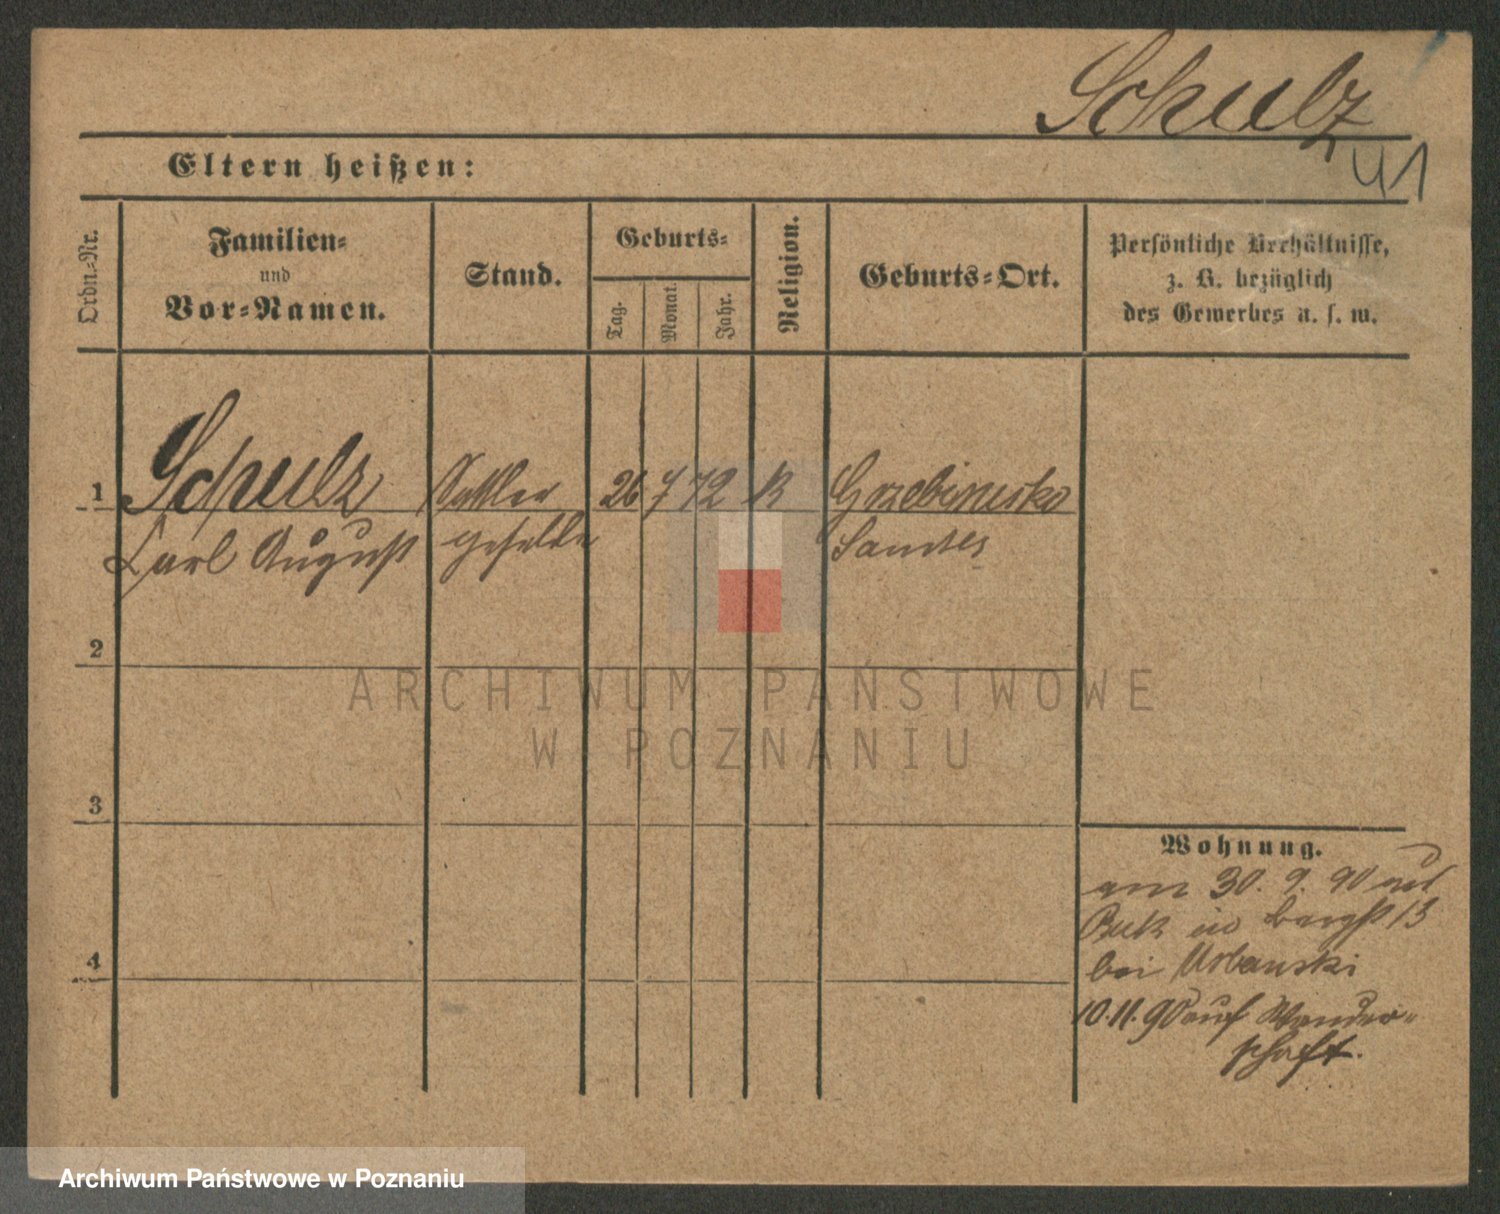 Schulz
41
Eltern heißen:
Ordn.-Nr.
Familien-
und
Vor-Namen.
Stand.
Geburts-
Tag.
Monat.
Jahr.
Religion.
Geburts-Ort.
Persönliche Verhältnisse,
z. B. bezüglich
des Gewerbes u. s. w.
1 Schulz Sattler 26 7 72
Carl August geselle
2
3
4
Wohnung.
am 30. 9. 90 aus
Buk in Bergst 13
bei Urbanski
10.11.90 auf Wander-
schaft.
ARCHIWUM PAŃSTWOWE
W POZNANIU
Archiwum Państwowe w Poznaniu